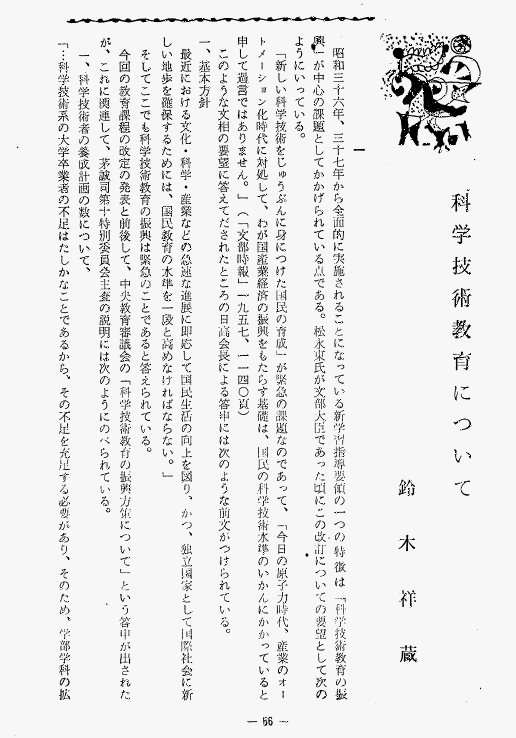 科学技術教育について
鈴木祥蔵
一
昭和三十六年、三十七年から全面的に実施されることになっている新学習指導要領の一つの特徴は「科学技術教育の振
興」が中心の課題としてかかげられている点である。松永東氏が文部大臣であった頃にこの改訂についての要望として次の
ようにいっている。
「新しい科学技術をじゅうぶんに身につけた国民の育成」が緊急の課題なのであって、「今日の原子力時代、産業のオー
トメーション化時代に対処して、わが国産業経済の振興をもたらす基礎は、国民の科学技術水準のいかんにかかっていると
申して過言ではありません。」(「文部時報」一九五七、一一四〇頁)
このような文相の要望に答えてだされたところの日高会長による答申には次のような前文がつけられている。
一、基本方針
最近における文化・科学・産業などの急速な進展に即応して国民生活の向上を図り、かつ、独立国家として国際社会に新
しい地歩を確保するためには、国民教育の水準を一段と高めなければならない。」
そしてここでも科学技術教育の振興は緊急のことであると答えられている。
今回の教育課程の改定の発表と前後して、中央教育審議会の「科学技術教育の振興方策について」という答申が出された
が、これに関連して、茅誠司第十特別委員会主査の説明には次のようにのべられている。
一、科学技術者の養成計画の数について、
「…科学技術系の大学卒業者の不足はたしかなことであるから、その不足を充足する必要があり、そのため、学部学科の拡
— 66 —